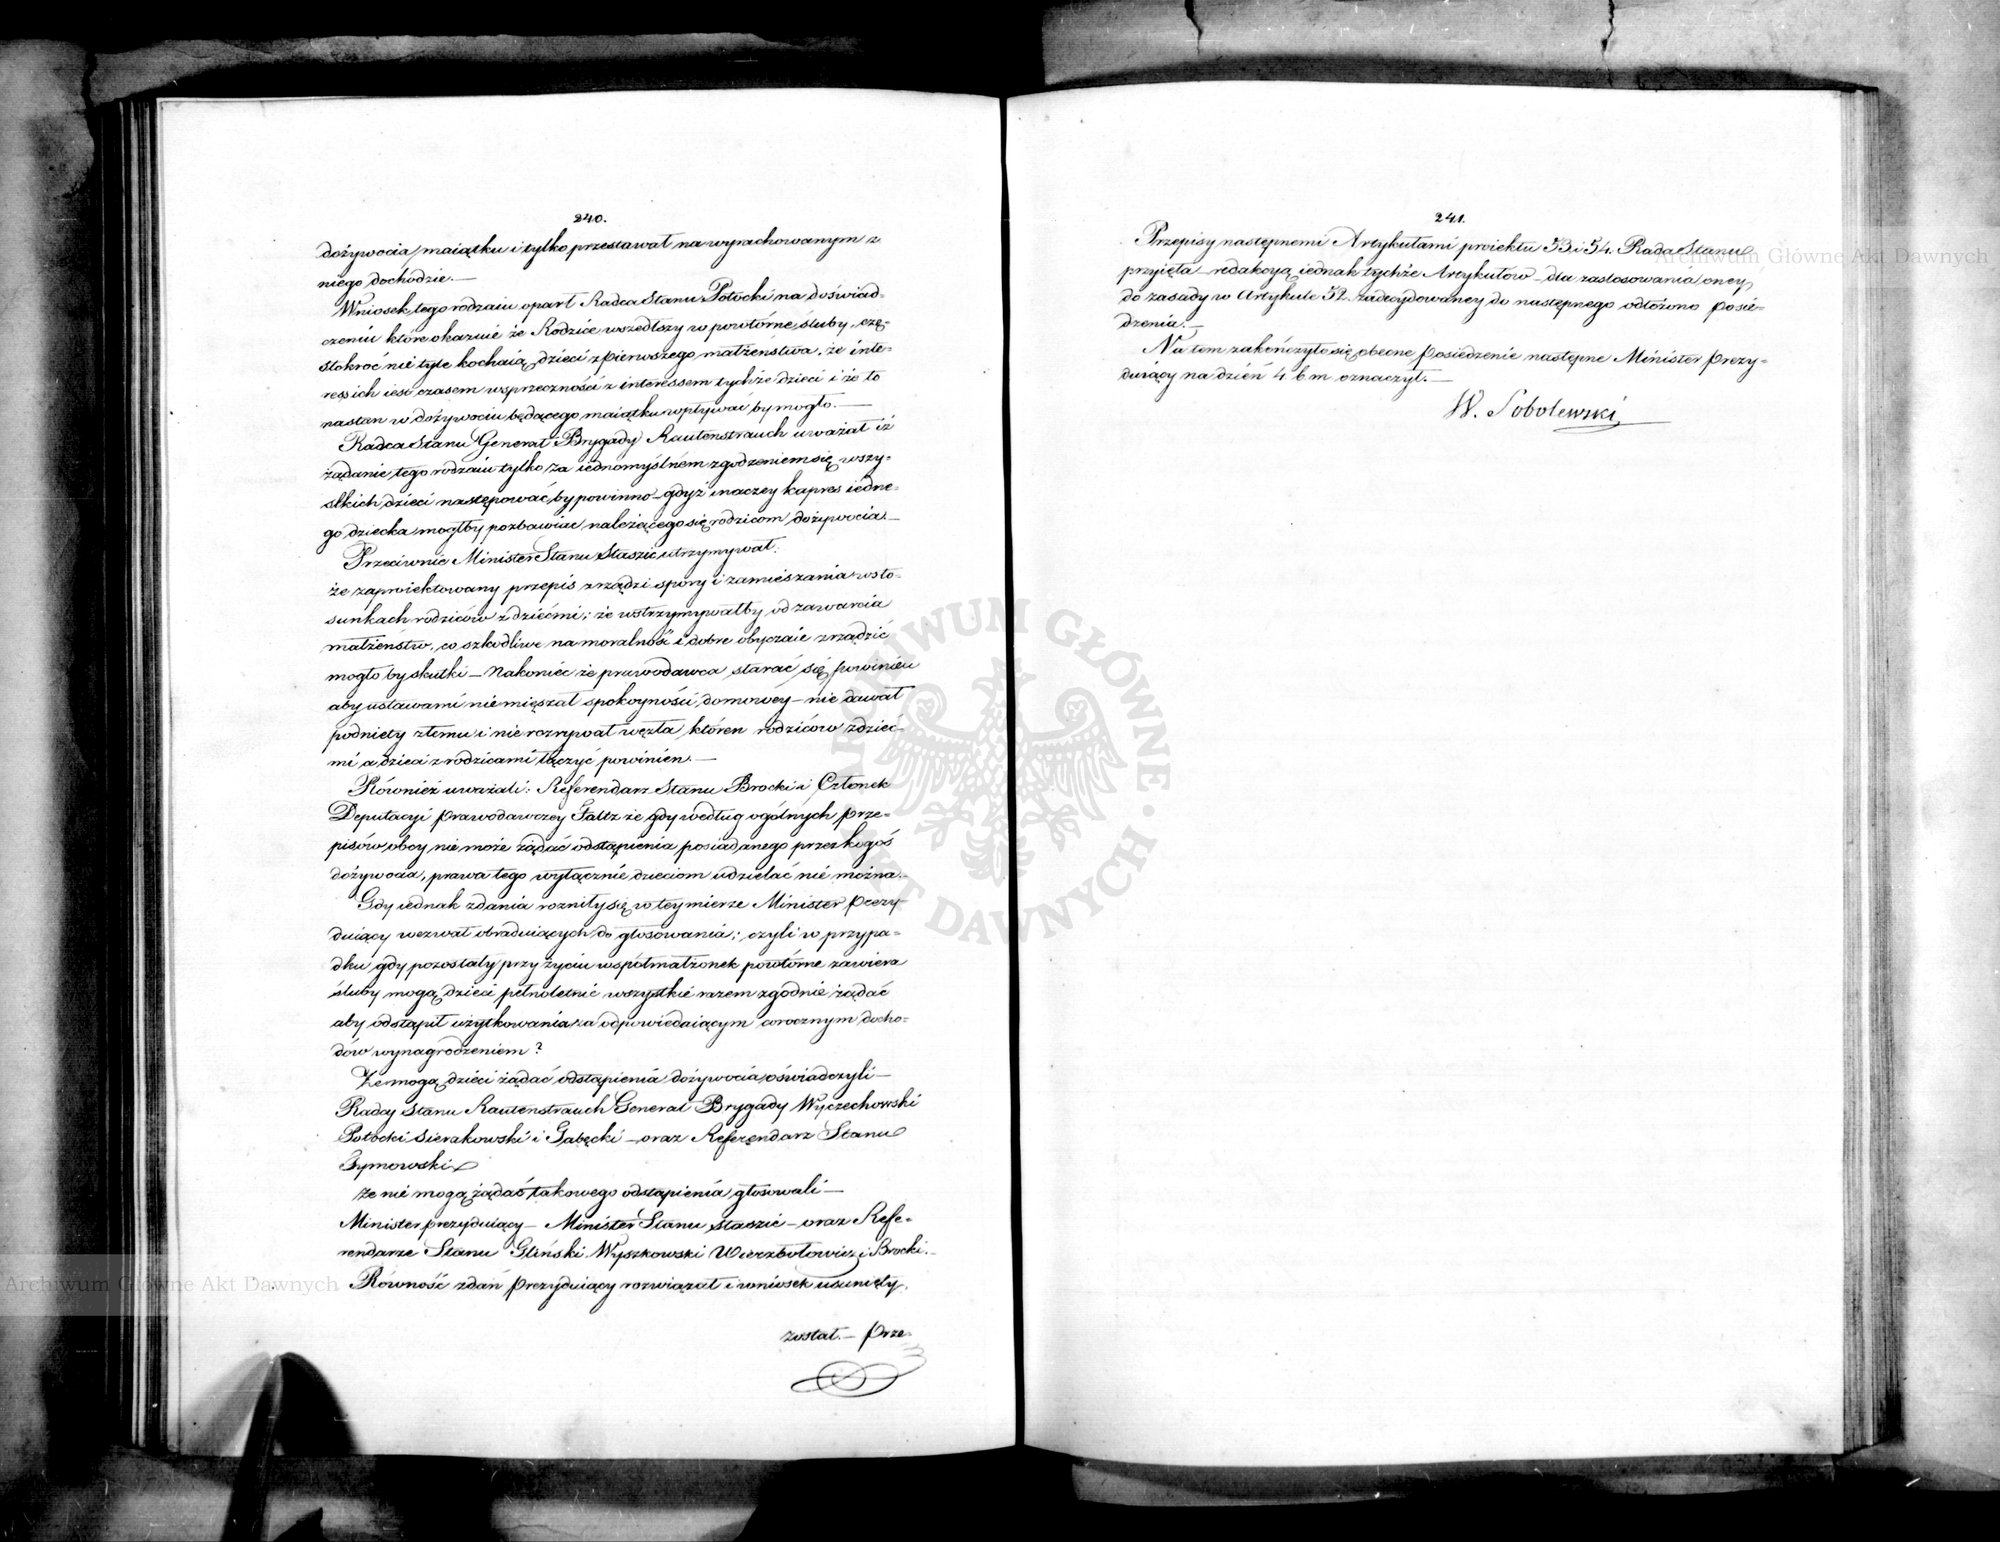 240.
dożywocia maiątku i tylko przestawał na wyrachowanym z
niego dochodzie.—
Wniosek tego rodzaiu oparł Radca Stanu Potocki na doświad-
czeniu które okazuie że Rodzice wszedłszy w powtórne śluby, czę-
stokroć nie tyle kochaią dzieci z pierwszego małżeństwa, że inte-
ress ich iest czasem w sprzeczności z interessem tychże dzieci i że to
na stan w dożywociu będącego maiątku wpływać by mogło.—
Radca Stanu Generał Brygady Rautenstrauch uważał iż
żądanie tego rodzaiu tylko za iednomyślnem zgodzeniem się wszy-
stkich dzieci następować by powinno — gdyż inaczey kapres iedne-
go dziecka mogłby pozbawiać należącego się rodzicom dożywocia.—
Przeciwnie Minister Stanu Staszic utrzymywał:
że zaproiektowany przepis zrządzi spory i zamieszania w sto-
sunkach rodziców z dziećmi; że wstrzymywałby od zawarcia
małżeństw, co szkodliwe na moralność i dobre obyczaie zrządzić
mogło by skutki — Nakoniec że prawodawca starać się powinien
aby ustawami nie mięszał spokoyności domowey — nie dawał
podniety złemu i nie rozrywał węzła któren rodziców z dzieć-
mi a dzieci z rodzicami łączyć powinien.—
Również uważali: Referendarz Stanu Brocki i Członek
Deputacyi prawodawczey Faltz że gdy według ogólnych prze-
pisów obcy nie może żądać odstąpienia posiadanego przez kogoś
dożywocia, prawa tego wyłącznie dzieciom udzielać nie można.—
Gdy iednak zdania rozniły się w tey mierze Minister Prezy-
duiący wezwał obraduiących do głosowania; czyli w przypa-
dku gdy pozostały przy życiu współmałżonek powtórne zawiera
śluby mogą dzieci pełnoletnie wszystkie razem zgodnie żądać
aby odstąpił użytkowania za odpowiedaiącym corocznym docho-
dów wynagrodzeniem?
Że mogą dzieci żądać odstąpienia dożywocia oświadczyli —
Radcy Stanu Rautenstrauch Generał Brygady Wyczechowski
Potocki Sierakowski i Gąbecki — oraz Referendarz Stanu
Tymowski
Że nie mogą żądać takowego odstąpienia głosowali —
Minister prezyduiący — Minister Stanu Staszic — oraz Refe-
rendarze Stanu Gliński Wyszkowski Wierzbołowicz i Brocki.—
Równość zdań Prezyduiący rozwiązał i wniosek usunięty
został.— Prze-
241.
Przepisy następnemi Artykułami proiektu 53 i 54. Rada Stanu
przyięła — redakcyą iednak tychże Artykułów — dla zastosowania oney
do zasady w Artykule 52. zadecydowaney do następnego odłożono Posie-
dzenia.—
Na tem zakończyło się obecne Posiedzenie następne Minister Prezy-
duiący na dzień 4 b m oznaczył.—
W. Sobolewski
Archiwum Główne Akt Dawnych
Archiwum Główne Akt Dawnych
ARCHIWUM GŁÓWNE · AKT DAWNYCH ·